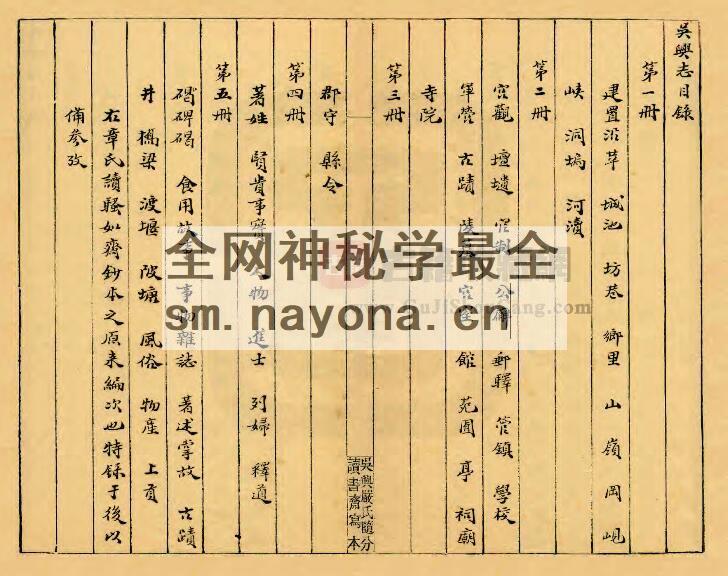 吳興志目錄
第一冊
建置沿革 城池 坊巷 鄉里 山 嶺 岡 峴
峽 洞 塢 河瀆
第二冊
宮觀 壇壝 官制 公廨 郵驛 管鎮 學校
軍營 古蹟 陵 宮室 館 苑囿 亭 祠廟
寺院
第三冊
郡守 縣令
第四冊
著姓 賢貴事實 人物 進士 列婦 釋道
第五冊
碑碣 食用故事 事物雜誌 著述掌故 古蹟
井 橋梁 渡 堰 陂塘 風俗 物產 上貢
右章氏讀騷如齋鈔本之原來編次也特錄于後以
備參攷
吳興嚴氏隨分
讀書齋寫本
全网神秘学最全
sm.nayona.cn